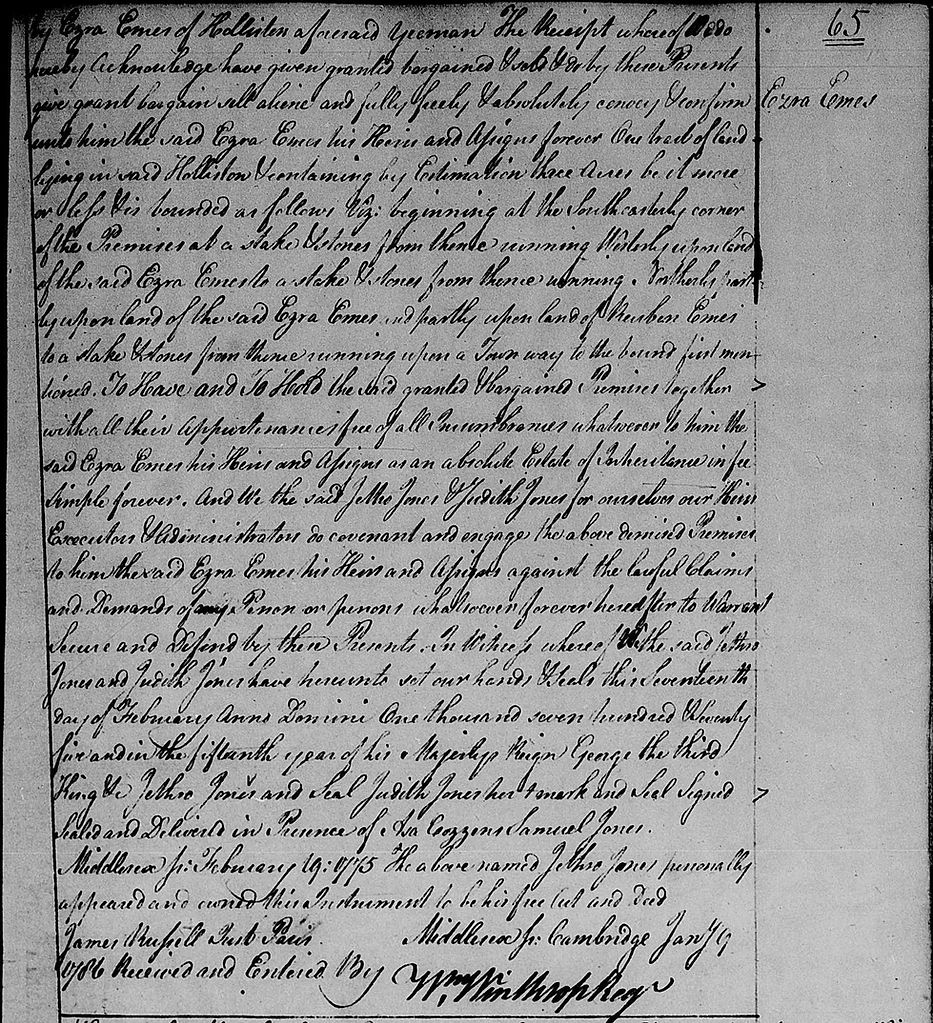 65
by Ezra Emes of Holliston aforesaid Yeoman The Receipt whereof We do
hereby Acknowledge have given granted bargained & sold & do by these Presents
give grant bargain sell aliene and fully freely & absolutely convey & confirm
Ezra Emes
unto him the said Ezra Emes his Heirs and Assigns forever One tract of land
lying in said Holliston & containing by Estimation three Acres be it more
or less & is bounded as follows Viz: beginning at the Southeasterly corner
of the Premises at a stake & stones from thence running Westerly upon land
of the said Ezra Emes to a stake & stones from thence running Northerly part-
ly upon land of the said Ezra Emes and partly upon land of Reuben Emes
to a stake & stones from thence running upon a Town way to the bound first men-
tioned. To Have and To Hold the said granted & bargained Premises together
with all their Appurtenances free of all Incumbrances whatsoever to him the
said Ezra Emes his Heirs and Assigns as an absolute Estate of Inheritance in fee
Simple forever. And We the said Jethro Jones & Judith Jones for ourselves our Heirs
Executors & Administrators do covenant and engage the above demised Premises
to him the said Ezra Emes his Heirs and Assigns against the lawful Claims
and Demands of any Person or persons whatsoever forever hereafter to Warrant
Secure and Defend by these Presents. In Witness whereof We the said Jethro
Jones and Judith Jones have hereunto set our hands & Seals this Seventeenth
day of February Anno Domini One thousand seven hundred & seventy
five and in the fifteenth year of his Majestys Reign George the third
King &c Jethro Jones and Seal Judith Jones her + mark and Seal Signed
Sealed and Delivered in Presence of Asa Cozzens Samuel Jones.
Middlesex Ss: February 19: 1775 The above named Jethro Jones personally
appeared and owned this Instrument to be his free Act and Deed
James Russell Just Pacis. Middlesex Ss: Cambridge Jany 9
1786 Received and Entered By Wm Winthrop Regr